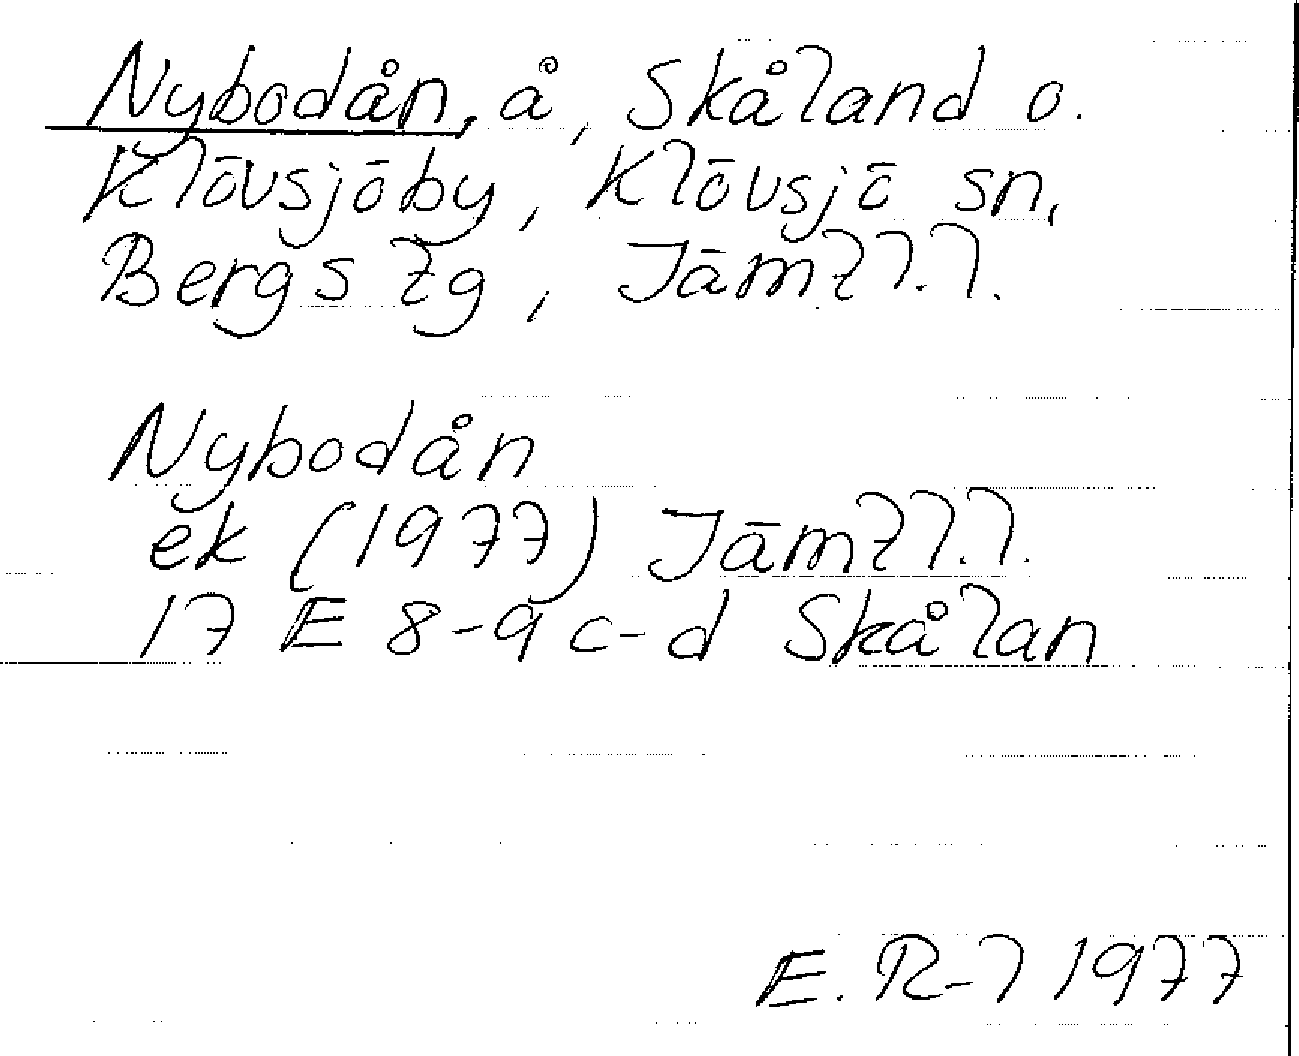 Nybodån, å, Skåland o.
Klövsjöby, Klövsjö sn,
Bergs tg, Jämtl.l.
Nybodån
ek (1977) Jämtl.l.
17 E 8-9 c-d Skålan
E. R-l 1977